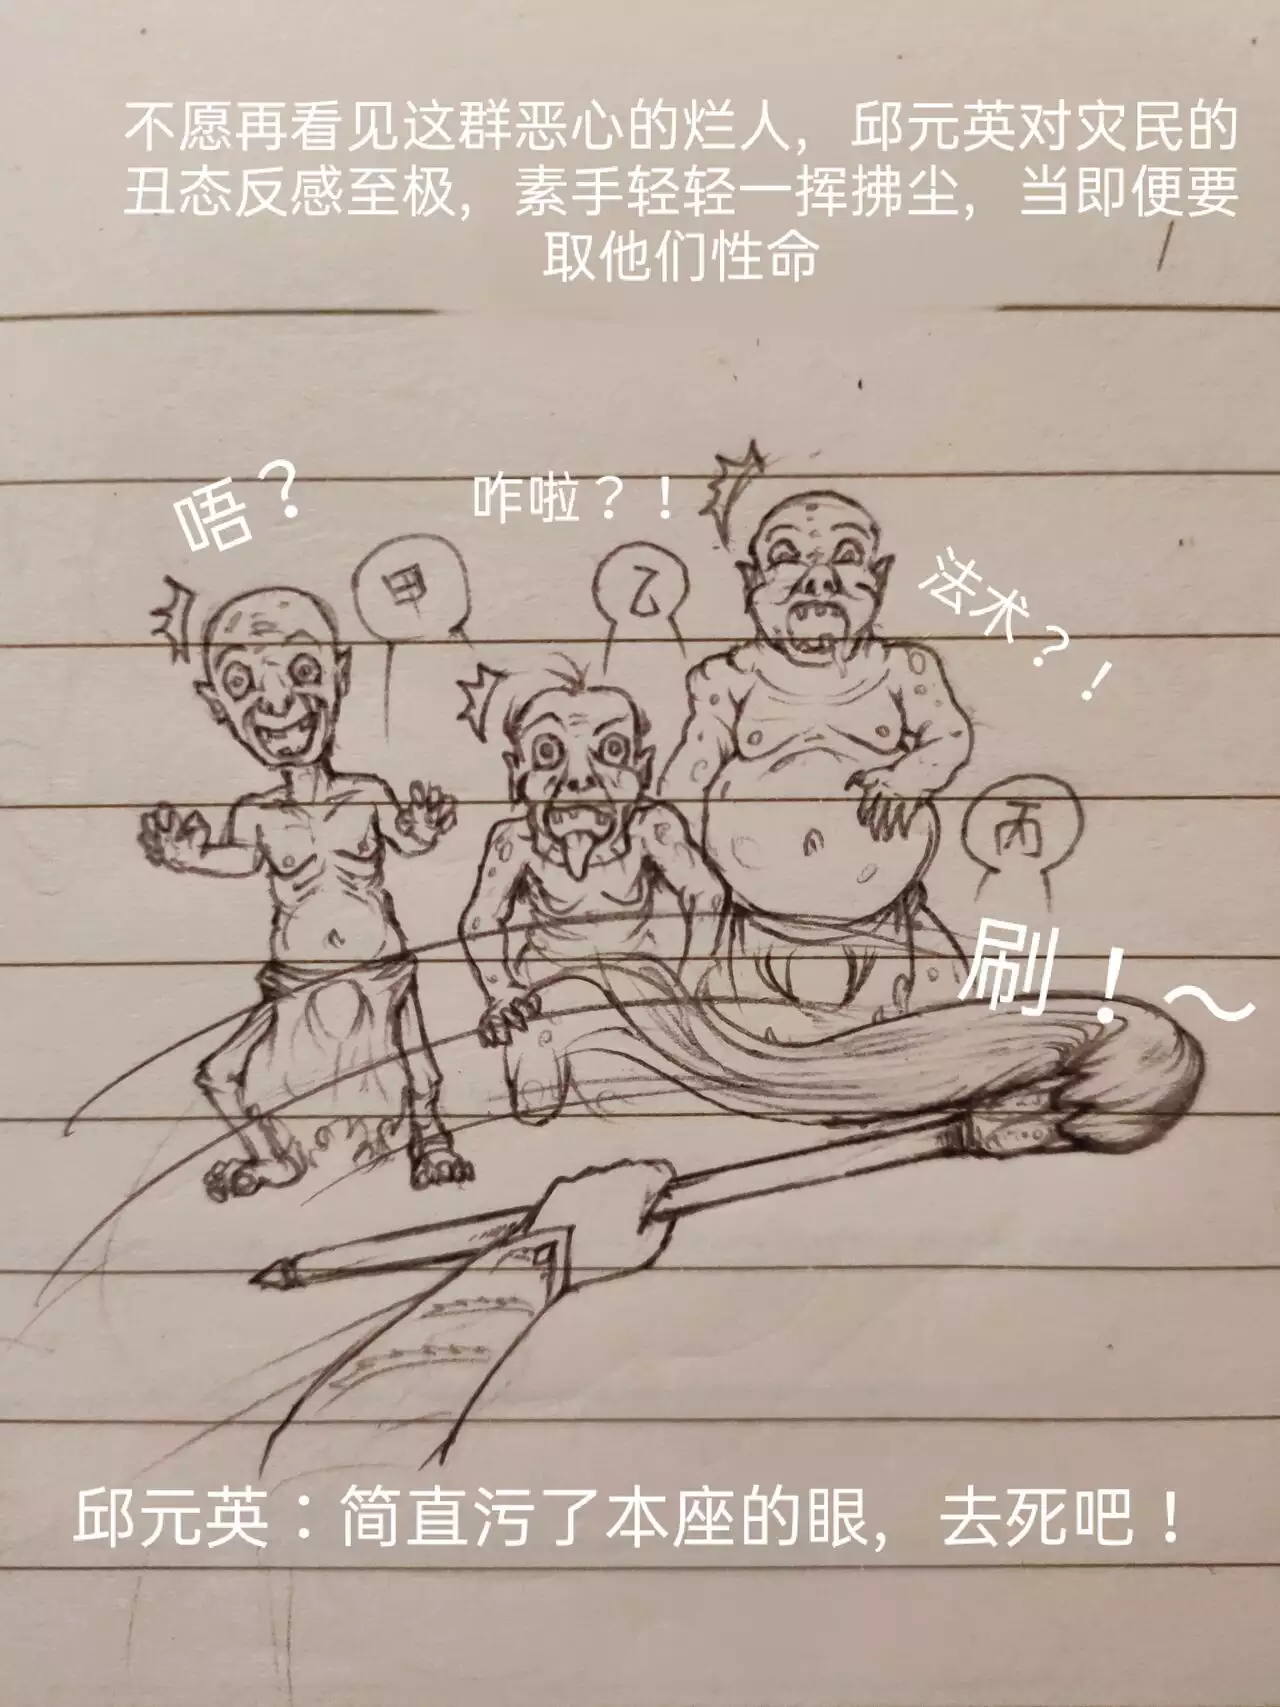 不愿再看见这群恶心的烂人，邱元英对灾民的
丑态反感至极，素手轻轻一挥拂尘，当即便要
取他们性命
唔？
咋啦？！
法术？！
甲
乙
丙
刷！～
邱元英：简直污了本座的眼，去死吧！